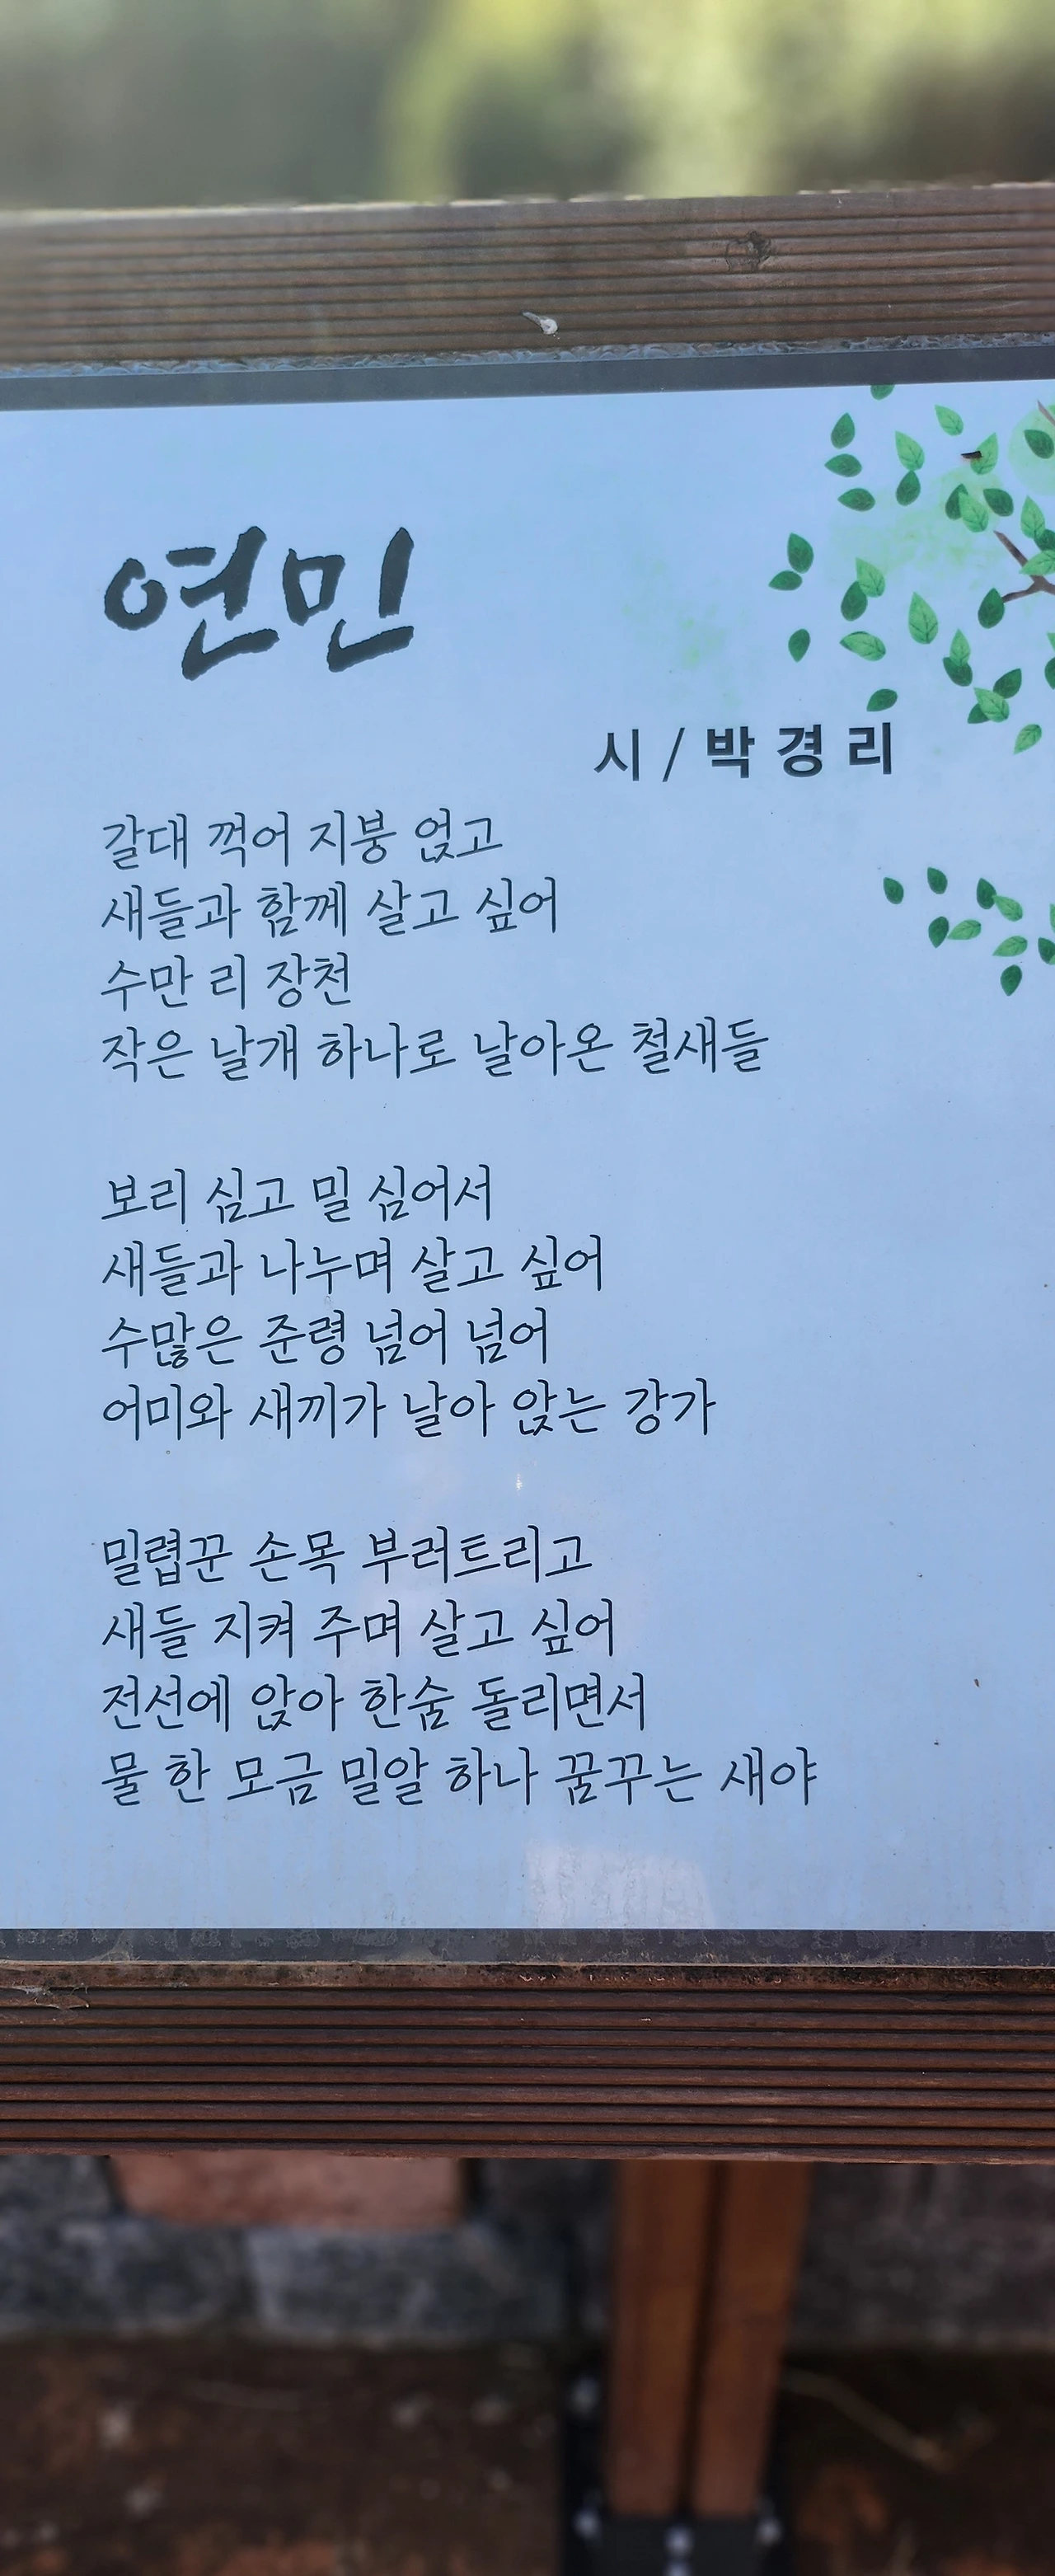 연민
시 / 박경리
갈대 꺽어 지붕 얹고
새들과 함께 살고 싶어
수만 리 장천
작은 날개 하나로 날아온 철새들
보리 심고 밀 심어서
새들과 나누며 살고 싶어
수많은 준령 넘어 넘어
어미와 새끼가 날아 앉는 강가
밀렵꾼 손목 부러트리고
새들 지켜 주며 살고 싶어
전선에 앉아 한숨 돌리면서
물 한 모금 밀알 하나 꿈꾸는 새야